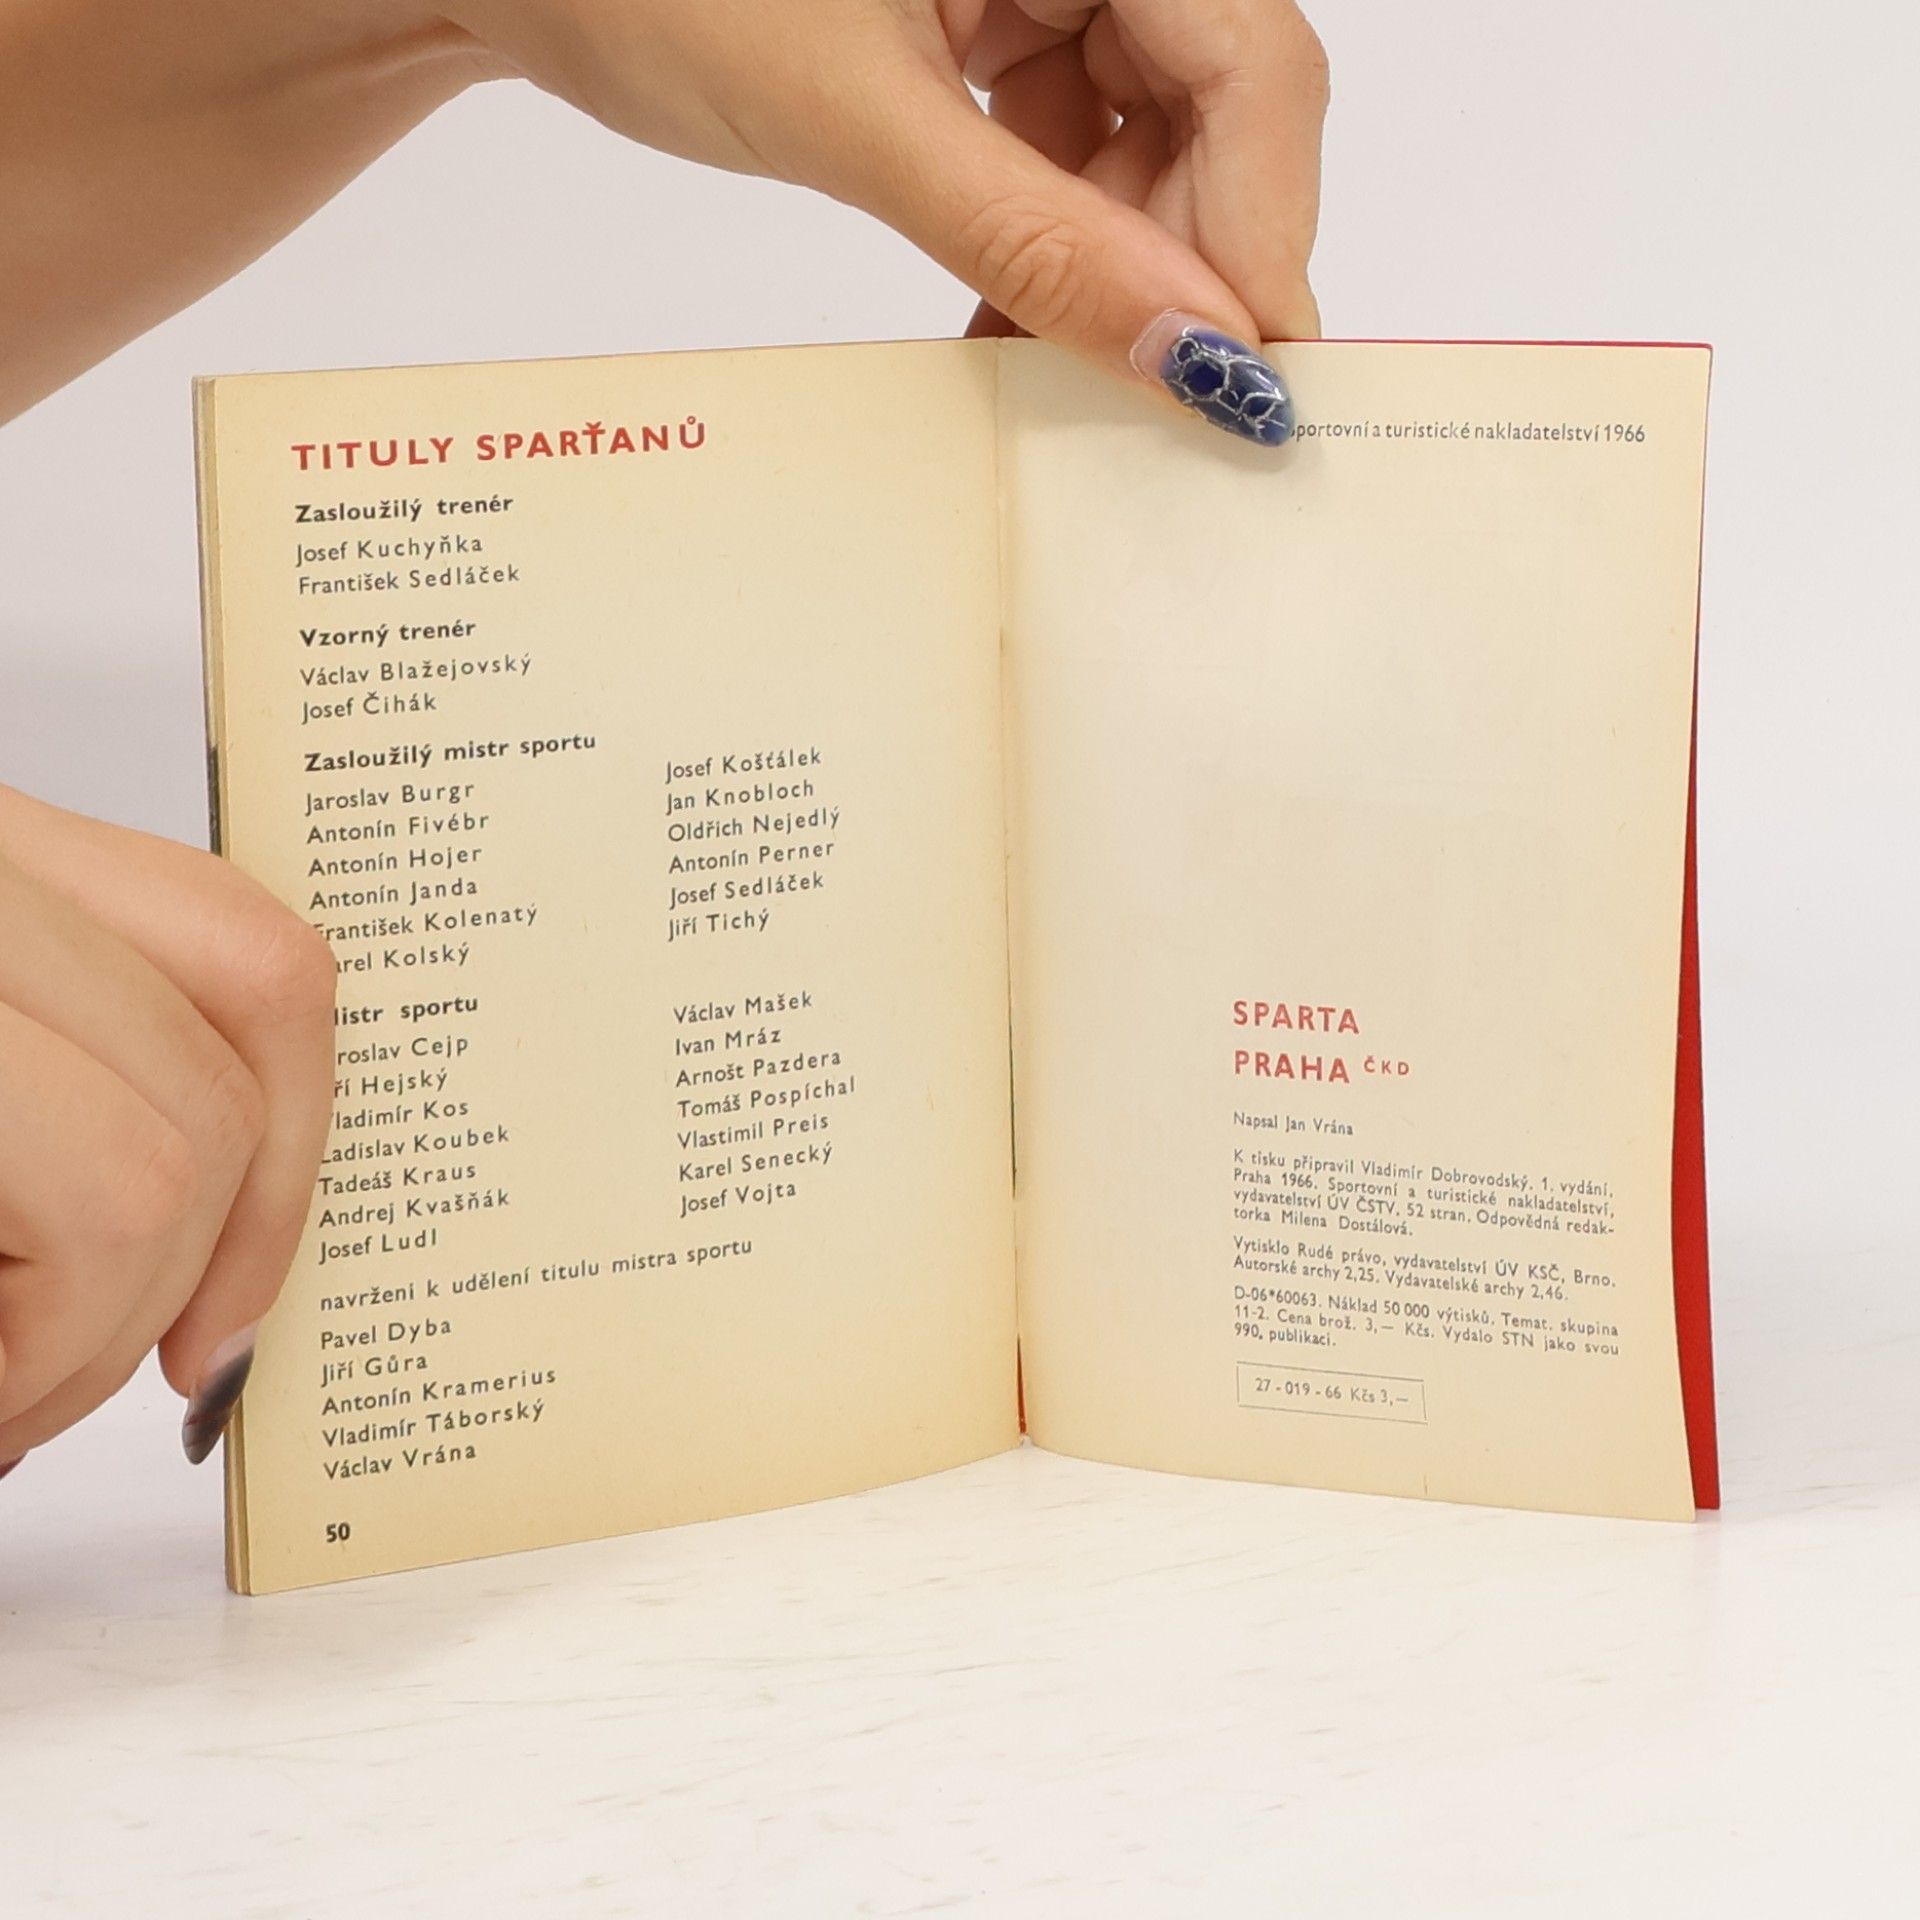 TITULY SPARŤANŮ
Zasloužilý trenér
Josef Kuchyňka
František Sedláček
Vzorný trenér
Václav Blažejovský
Josef Čihák
Zasloužilý mistr sportu
Jaroslav Burgr
Antonín Fivébr
Antonín Hojer
Antonín Janda
František Kolenatý
Kolský
Josef Košťálek
Jan Knobloch
Oldřich Nejedlý
Antonín Perner
Josef Sedláček
Jiří Tichý
sportu
Cejp
Hejský
Vladimír Kos
Ladislav Koubek
Tadeáš Kraus
Andrej Kvašňák
Josef Ludl
Václav Mašek
Ivan Mráz
Arnošt Pazdera
Tomáš Pospíchal
Vlastimil Preis
Karel Senecký
Josef Vojta
navrženi k udělení titulu mistra sportu
Pavel Dyba
Jiří Gůra
Antonín Kramerius
Vladimír Táborský
Václav Vrána
50
Sportovní a turistické nakladatelství 1966
SPARTA
PRAHA ČKD
Napsal Jan Vrána
K tisku připravil Vladimír Dobrovodský. 1. vydání,
Praha 1966. Sportovní a turistické nakladatelství,
vydavatelství ÚV ČSTV. 52 stran. Odpovědná redak-
torka Milena Dostálová.
Vytisklo Rudé právo, vydavatelství ÚV KSČ, Brno.
Autorské archy 2,25. Vydavatelské archy 2,46.
D-06*60063. Náklad 50 000 výtisků. Temat. skupina
11-2. Cena brož. 3,— Kčs. Vydalo STN jako svou
990. publikaci.
27 - 019 - 66 Kčs 3,—